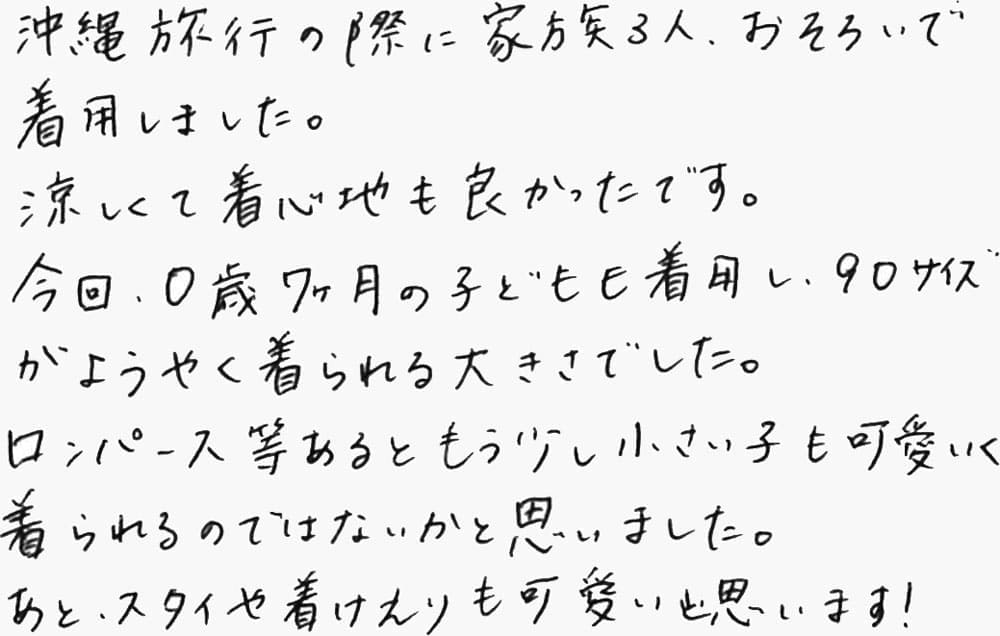 沖縄旅行の際に家族3人、おそろいで
着用しました。
涼しくて着心地も良かったです。
今回、0歳7ヶ月の子どもも着用し、90サイズ
がようやく着られる大きさでした。
ロンパース等あるともう少し小さい子も可愛いく
着られるのではないかと思いました。
あと、スタイや着けえりも可愛いと思います!